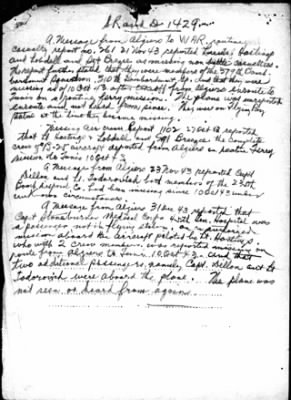 SR and D 1429
A Message from Algiers to WAR, routine
casualty report no. 361 21 Nov 43 reported Hastings
and Lobdell and Sgt as missing non battle casualties.
The report further stated that they were members of the 379th Bom-
bardment Squadron, 310th Bombardment Gp. and that they were
missing as of 10 Oct 43 after takeoff from Algiers enroute to
Tunis on a ferry mission. The plane was unreported
enroute and not heard from, since. They were on flying
status at the time they became missing.
Missing Air Crew Report 1102 27 Oct 43 reported
that Lt Hastings & Lobdell and Sgt the complete
crew of B-25 aircraft departed from Algiers on ferry
mission to Tunis 10 Oct 43.
A Message from Algiers 23 Nov 43 reported Capt
Dillon and Lt Todorovich both members of the 235th
Co. had been missing since 10 Oct 43 under
circumstances.
A Message from Algiers 31 Dec 43 reported that
Capt Medical Corps Hospital was
a passenger not in flying status, on authorized
mission aboard the Aircraft piloted by Lt Hastings
who with 2 crew members was reported missing en
route from Algiers to Tunis 10 Oct 43. and that
two additional passengers namely Capt. Dillon and Lt
Todorovich were aboard the plane. The plane was
not seen or heard from again